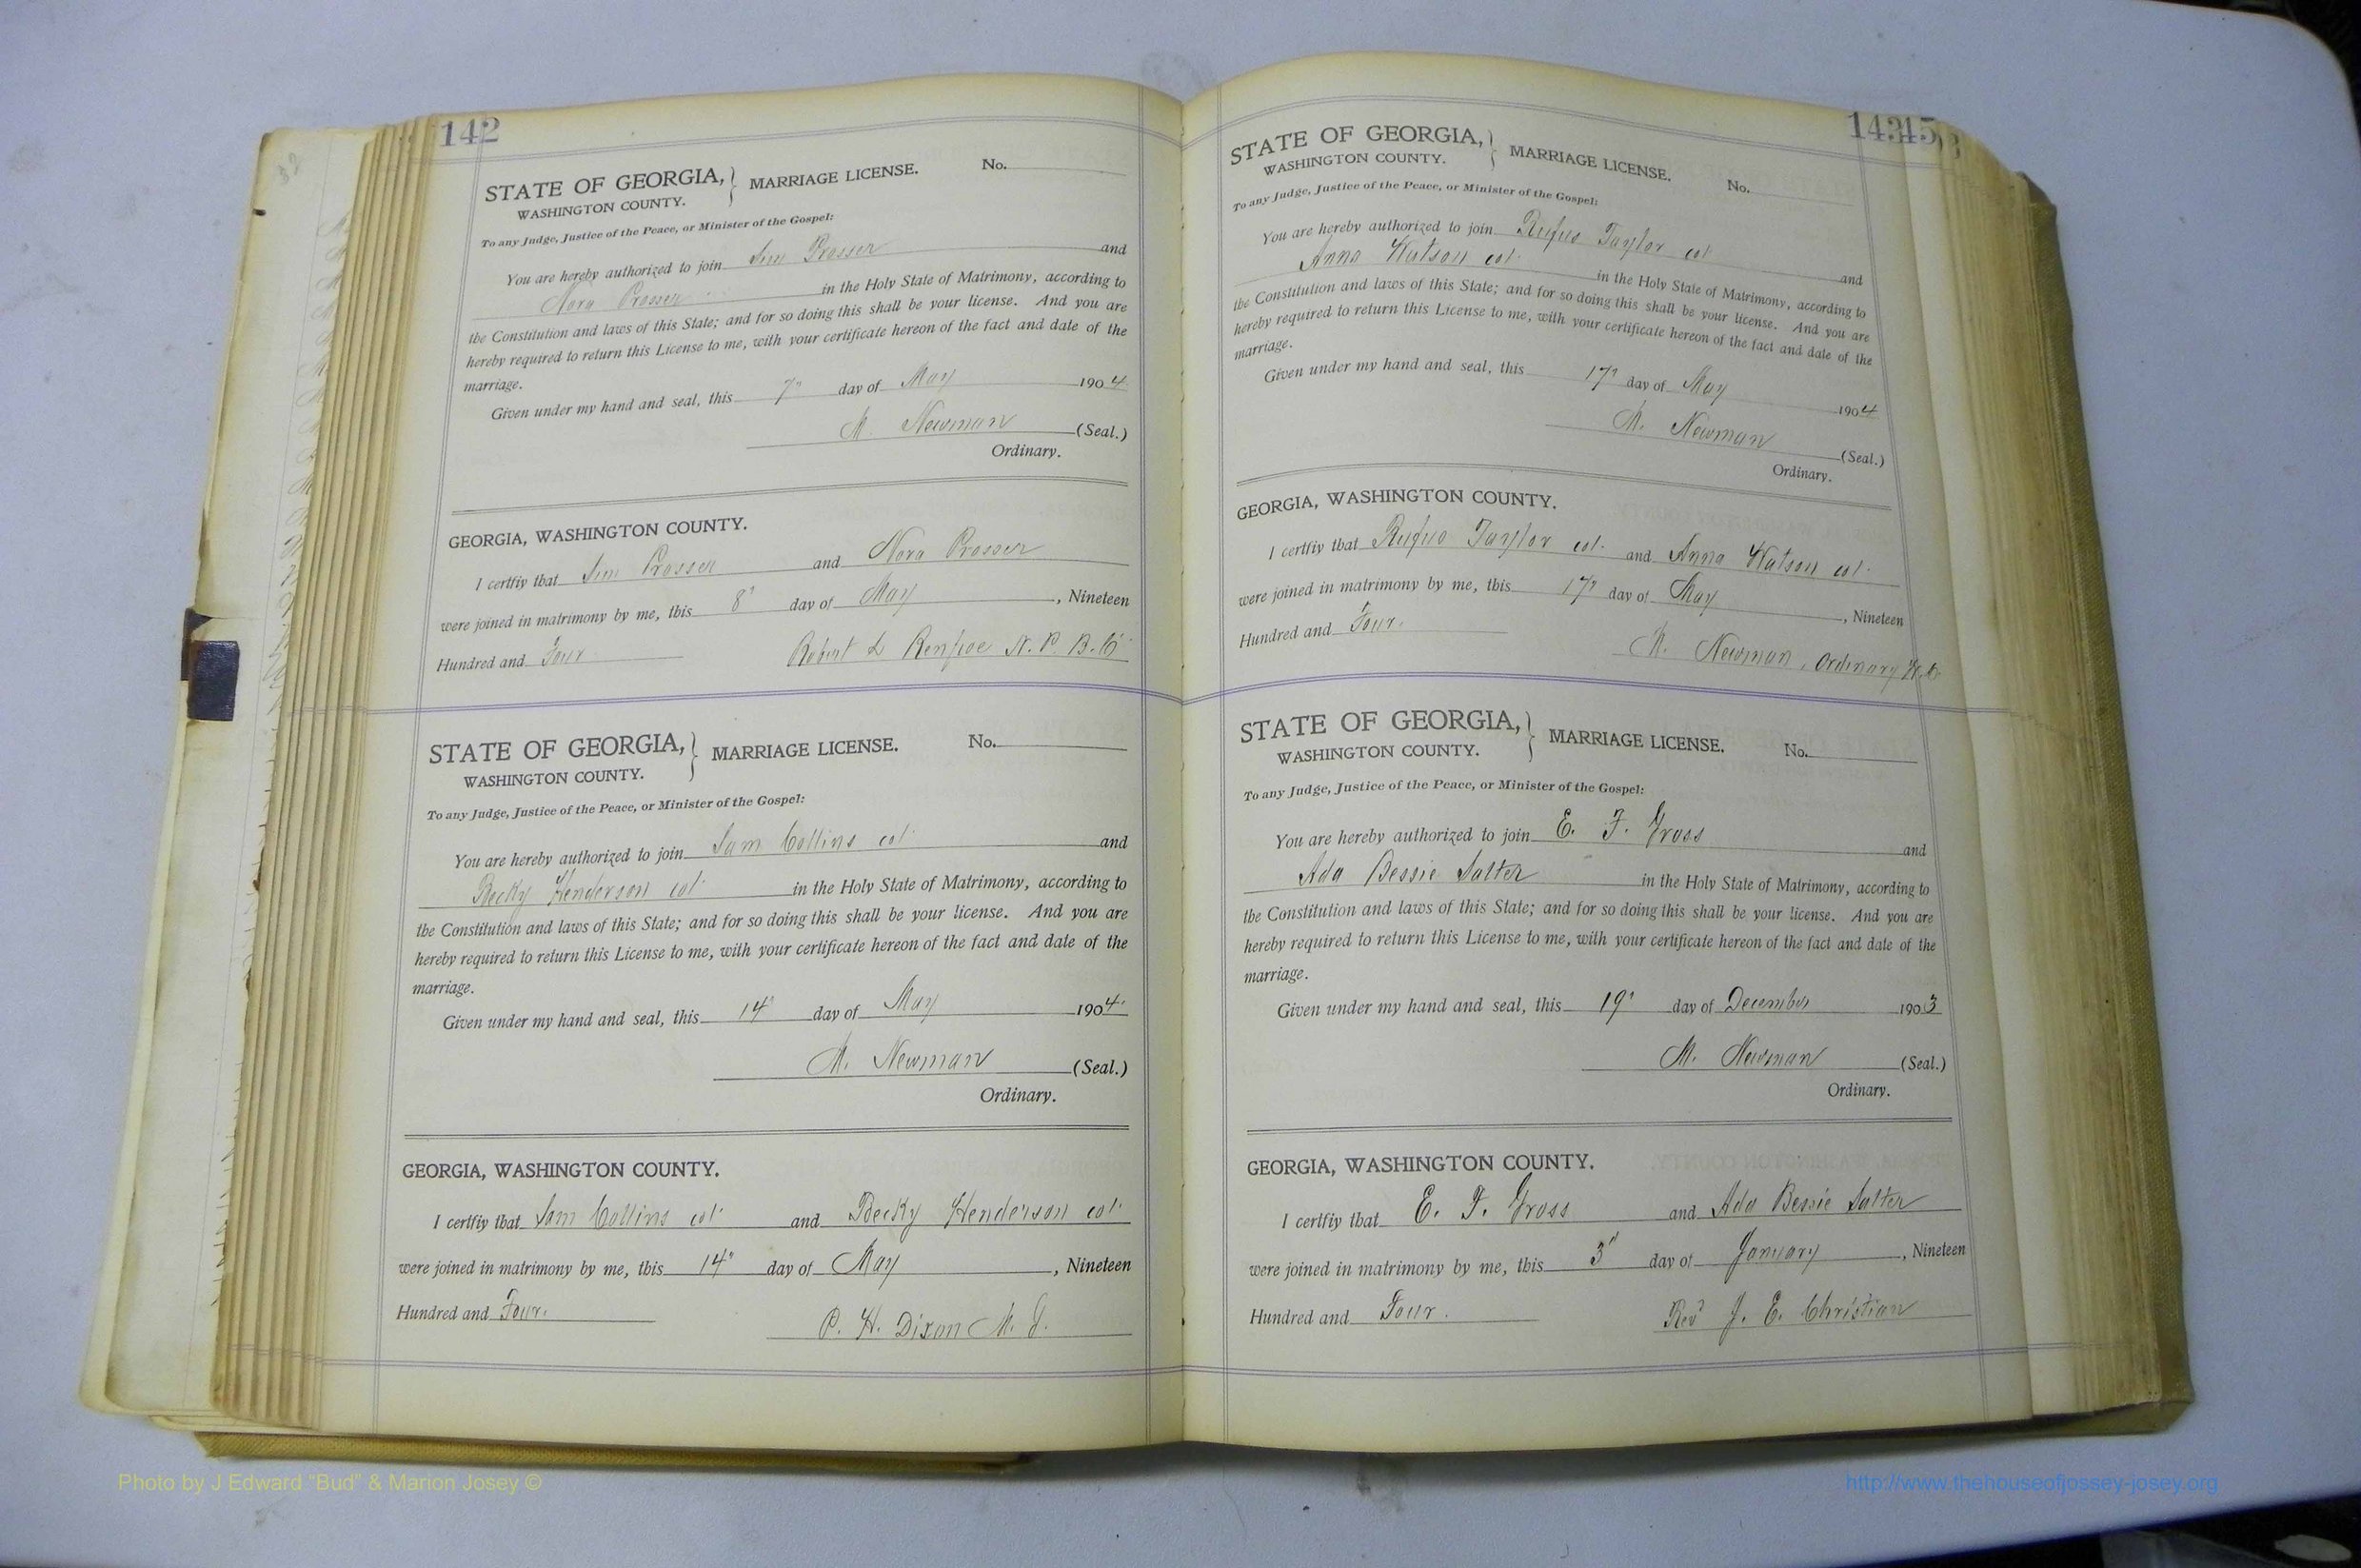 142
STATE OF GEORGIA, } MARRIAGE LICENSE. No.
WASHINGTON COUNTY.
To any Judge, Justice of the Peace, or Minister of the Gospel:
You are hereby authorized to join Jim Prosser and
Nora Prosser in the Holy State of Matrimony, according to
the Constitution and laws of this State; and for so doing this shall be your license. And you are
hereby required to return this License to me, with your certificate hereon of the fact and date of the
marriage.
Given under my hand and seal, this 7" day of May 1904
M. Newman (Seal.)
Ordinary.
GEORGIA, WASHINGTON COUNTY.
I certfiy that Jim Prosser and Nora Prosser
were joined in matrimony by me, this 8" day of May , Nineteen
Hundred and Four
Robert L Renfroe N. P. B. C.
STATE OF GEORGIA, } MARRIAGE LICENSE. No.
WASHINGTON COUNTY.
To any Judge, Justice of the Peace, or Minister of the Gospel:
You are hereby authorized to join Sam Collins col. and
Becky Henderson col. in the Holy State of Matrimony, according to
the Constitution and laws of this State; and for so doing this shall be your license. And you are
hereby required to return this License to me, with your certificate hereon of the fact and date of the
marriage.
Given under my hand and seal, this 14" day of May 1904.
M. Newman (Seal.)
Ordinary.
GEORGIA, WASHINGTON COUNTY.
I certfiy that Sam Collins col. and Becky Henderson col.
were joined in matrimony by me, this 14" day of May , Nineteen
Hundred and Four.
P. H. Dixon M. G.
143 45
STATE OF GEORGIA, } MARRIAGE LICENSE. No.
WASHINGTON COUNTY.
To any Judge, Justice of the Peace, or Minister of the Gospel:
You are hereby authorized to join Rufus Taylor col and
Anna Watson col. in the Holy State of Matrimony, according to
the Constitution and laws of this State; and for so doing this shall be your license. And you are
hereby required to return this License to me, with your certificate hereon of the fact and date of the
marriage.
Given under my hand and seal, this 17" day of May 1904
M. Newman (Seal.)
Ordinary.
GEORGIA, WASHINGTON COUNTY.
I certfiy that Rufus Taylor col. and Anna Watson col.
were joined in matrimony by me, this 17" day of May , Nineteen
Hundred and Four.
M. Newman, Ordinary W.C.
STATE OF GEORGIA, } MARRIAGE LICENSE. No.
WASHINGTON COUNTY.
To any Judge, Justice of the Peace, or Minister of the Gospel:
You are hereby authorized to join E. F. Gross and
Ada Bessie Salter in the Holy State of Matrimony, according to
the Constitution and laws of this State; and for so doing this shall be your license. And you are
hereby required to return this License to me, with your certificate hereon of the fact and date of the
marriage.
Given under my hand and seal, this 19" day of December 1903
M. Newman (Seal.)
Ordinary.
GEORGIA, WASHINGTON COUNTY.
I certfiy that E. F. Gross and Ada Bessie Salter
were joined in matrimony by me, this 3" day of January , Nineteen
Hundred and Four.
Rev J. E. Christian
Photo by J Edward "Bud" & Marion Josey ©
http://www.thehouseofjossey-josey.org